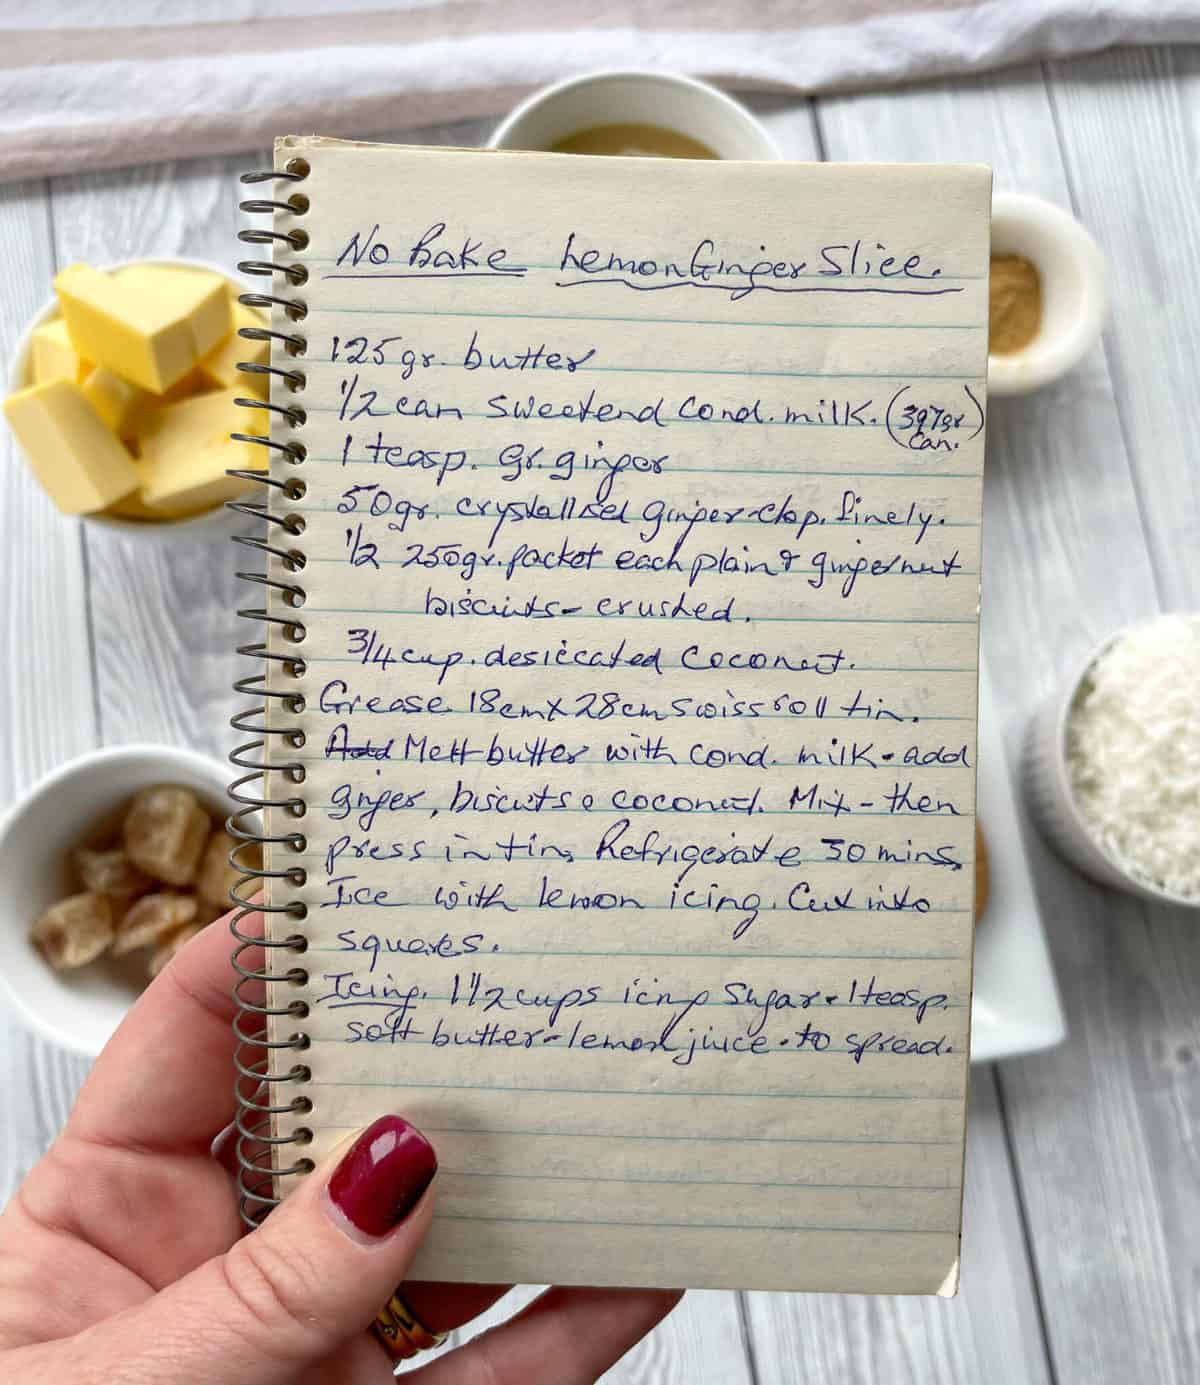 No Bake Lemon Ginger Slice.
125gr. butter
1/2 can sweetend Cond. milk. (397gr Can.)
1 teasp. Gr. ginger
50gr. crystallised ginger-chop. finely.
1/2 250gr. packet each plain & gingernut
biscuits - crushed.
3/4 cup. desiccated Coconut.
Grease 18cm x 28cm Swiss roll tin.
Add Melt butter with Cond. milk - add
ginger, biscuits & coconut. Mix - then
press in tin. Refrigerate 30 mins.
Ice with lemon icing. Cut into
squares.
Icing. 1 1/2 cups icing Sugar - 1 teasp.
soft butter - lemon juice - to spread.